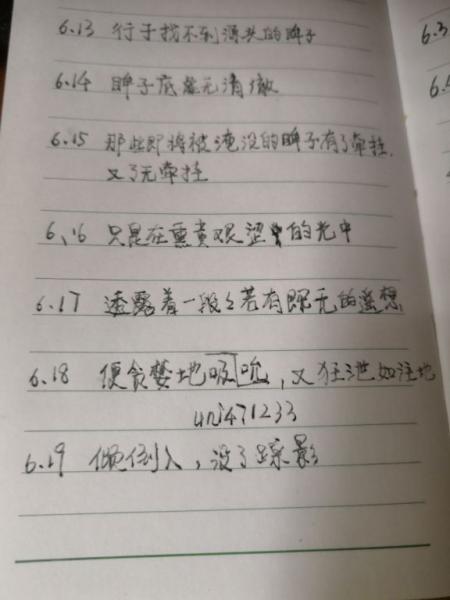 6.13 行于找不到源头的眸子
6.14 眸子底毫无清澈
6.15 那些即将被淹没的眸子有了牵挂,
又了无牵挂
6.16 只是在熏黄艰涩的光中
6.17 透露着一段々若有即无的遥想
6.18 便贪婪地吸吮,又狂泄如注地
uni471233
6.19 倾倒入,没了踪影
6.
6.